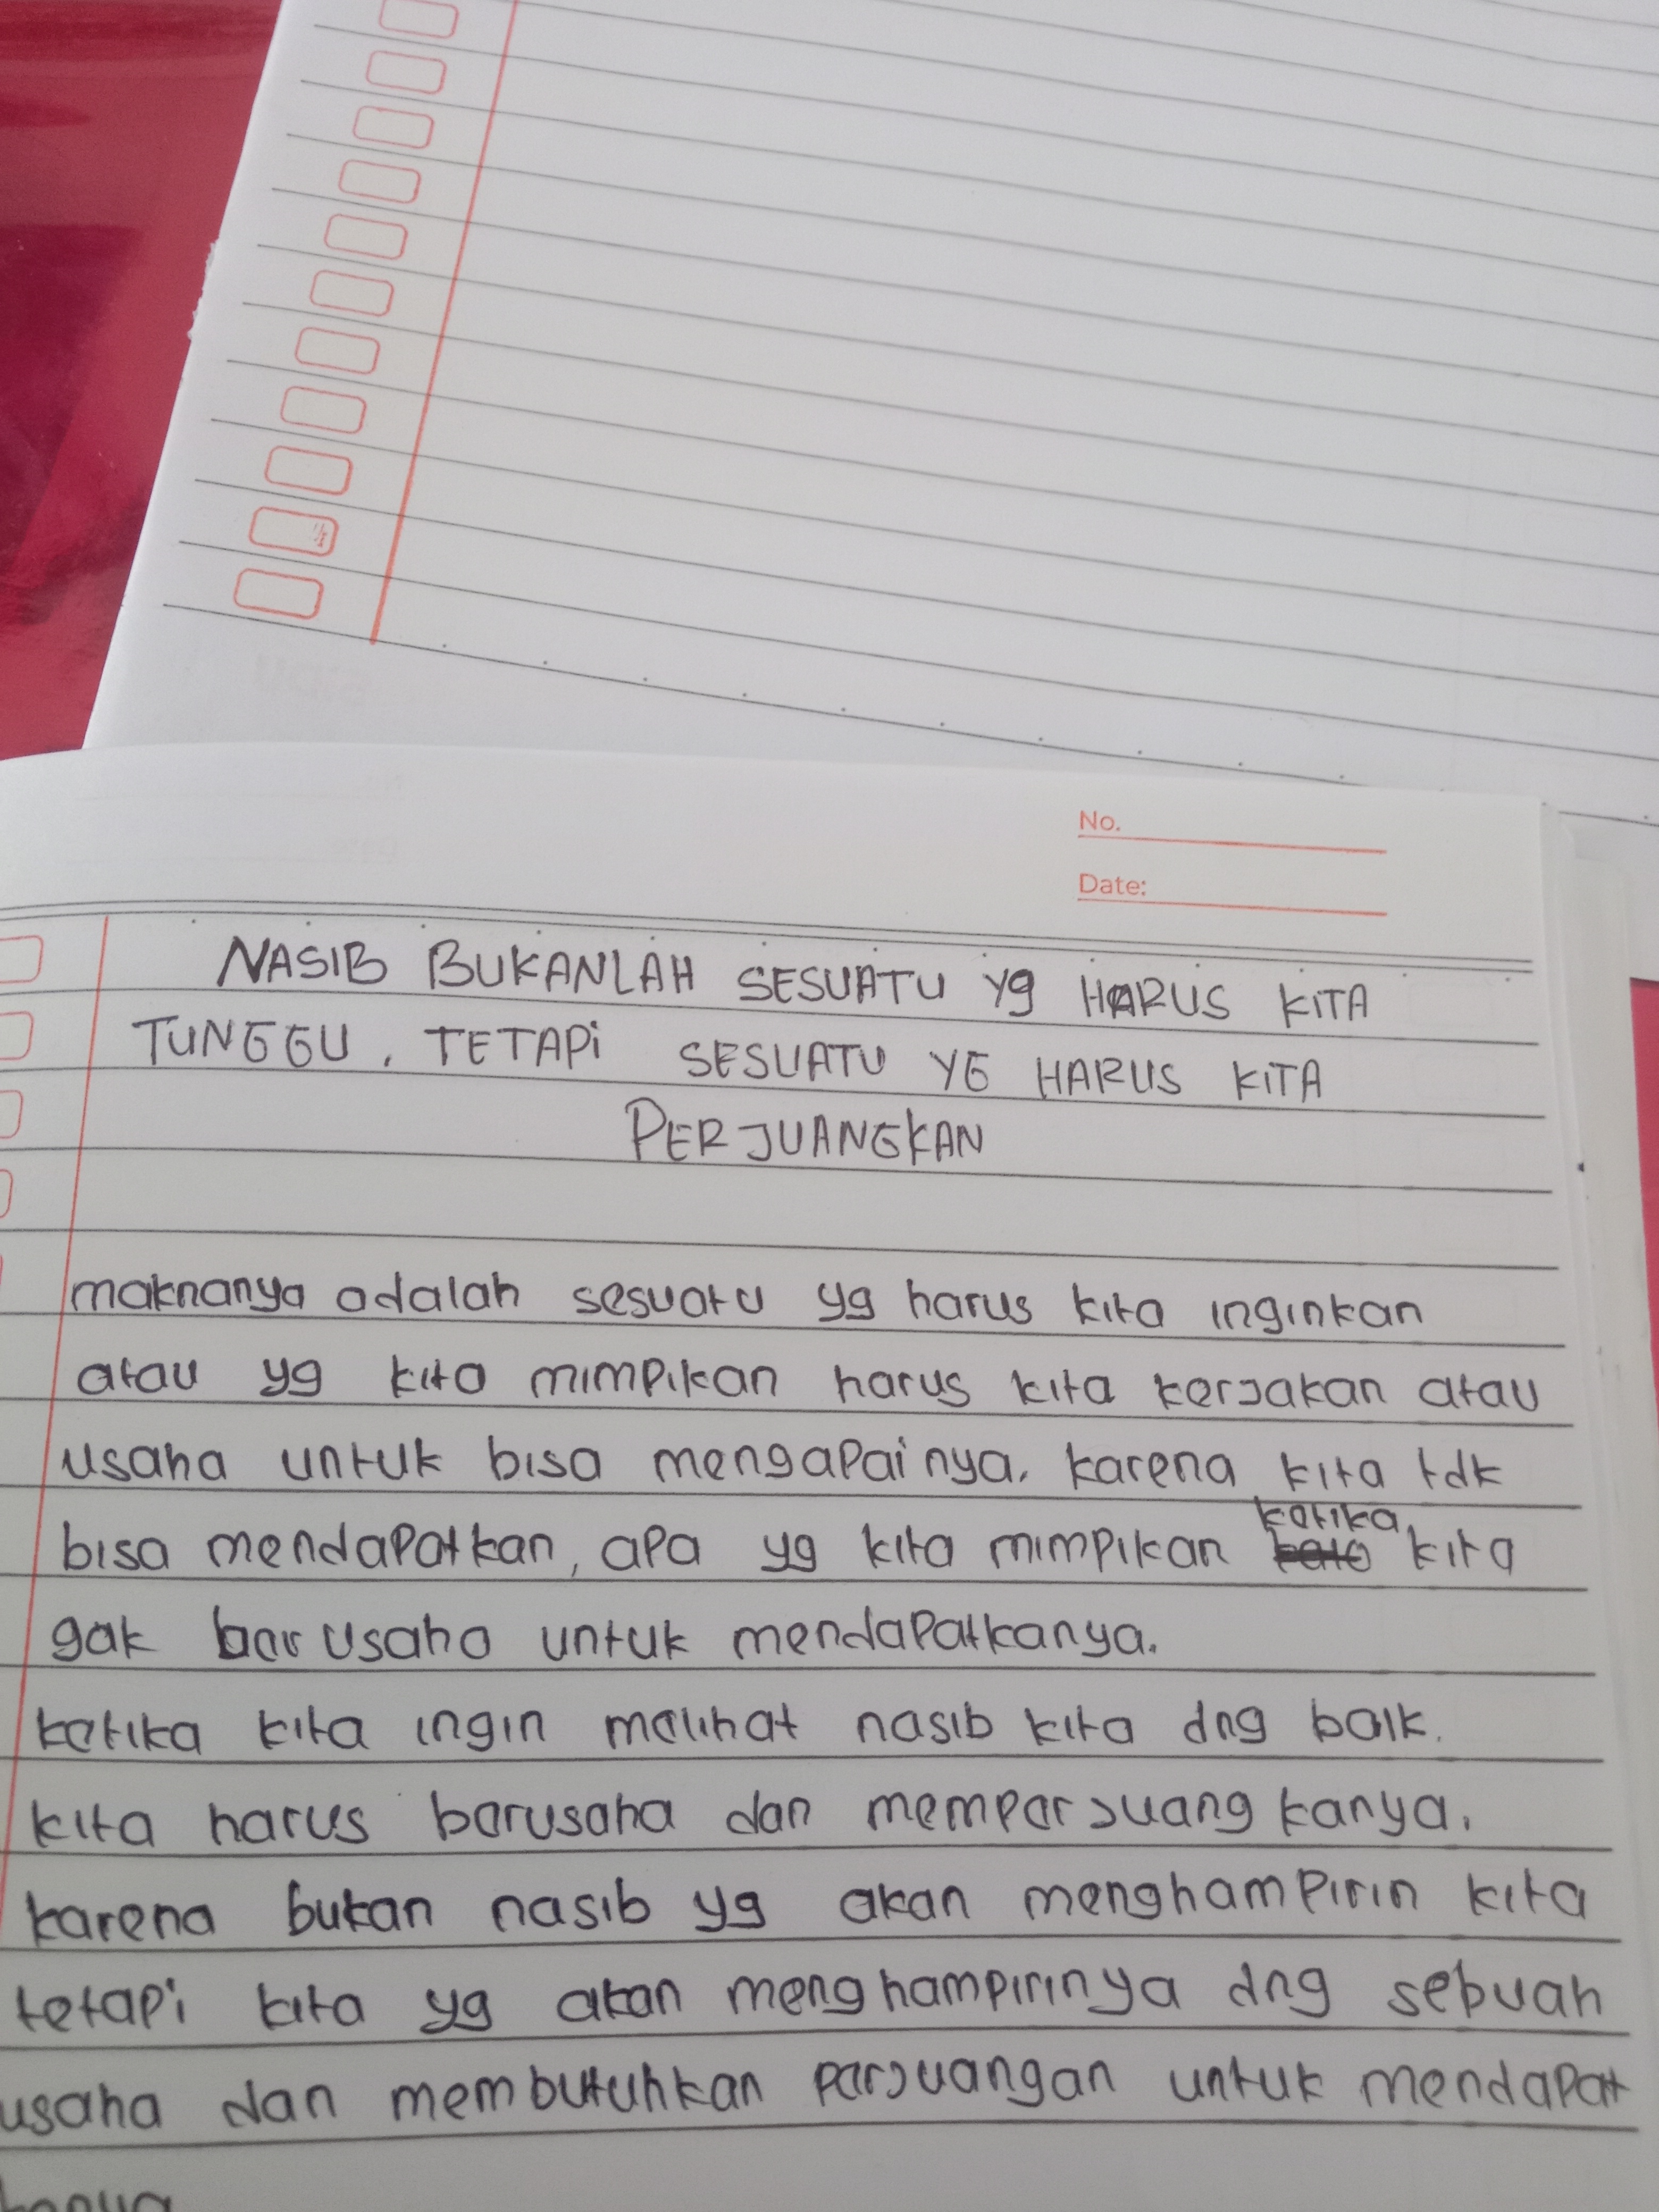 No.
Date:
NASIB BUKANLAH SESUATU yg HARUS KITA
TUNGGU, TETAPi SESUATU YG HARUS KITA
PERJUANGKAN
maknanya adalah sesuatu yg harus kita inginkan
atau yg kita mimpikan harus kita kerjakan atau
usaha untuk bisa mengapainya. karena kita tdk
bisa mendapatkan, apa yg kita mimpikan ketika kita
gak berusaha untuk mendapatkanya.
ketika kita ingin melihat nasib kita dng baik.
kita harus berusaha dan memperjuangkanya.
karena bukan nasib yg akan menghampirin kita
tetapi kita yg akan menghampirinya dng sebuah
usaha dan membutuhkan perjuangan untuk mendapat
kanya